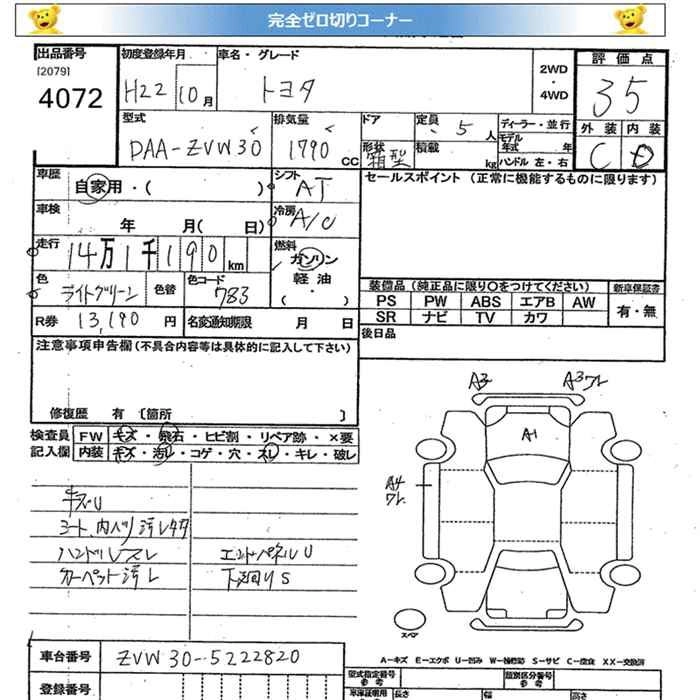 完全ゼロ切りコーナー
出品番号 初度登録年月 車名・グレード 評価点
[2079]
4072 H22 10月 トヨタ 2WD・4WD 35
型式 排気量 ドア 定員 ディーラー・並行 外装 内装
DAA-ZVW30 1790 CC 5人 モデル年式 年 C D
形状 箱型 積載 kg ハンドル 左・右
車歴 自家用・( ) シフト AT セールスポイント (正常に機能するものに限ります)
車検 年 月( 日) 冷房 A/C
走行 14万1千190 km 燃料 ガソリン 軽油 ・( )
色 ライトグリーン 色替 色コード 783
装備品 (純正品に限り○をつけてください) 新車保証書
PS PW ABS エアB AW 有・無
SR ナビ TV カワ
R券 13,190円 名変通知期限 月 日 後日品
注意事項申告欄 (不具合内容等は具体的に記入して下さい)
修復歴 有 [箇所 ]
検査員 FW キズ・飛石・ヒビ割・リペア跡・×要
記入欄 内装 キズ・汚レ・コゲ・穴・スレ・キレ・破レ
A3 A3ワレ
A1
A4
ワレ
キズU
シート、内ハリ汚レ
ハンドルスレ エンドパネルU
カーペット汚レ 下廻りS
スペア
A-キズ E-エクボ U-凹み W-補修跡 S-サビ C-腐食 XX-交換済
車台番号 ZVW30-5222820
登録番号
型式指定番号 参考 類別区分番号 参考
長さ 幅 高さ